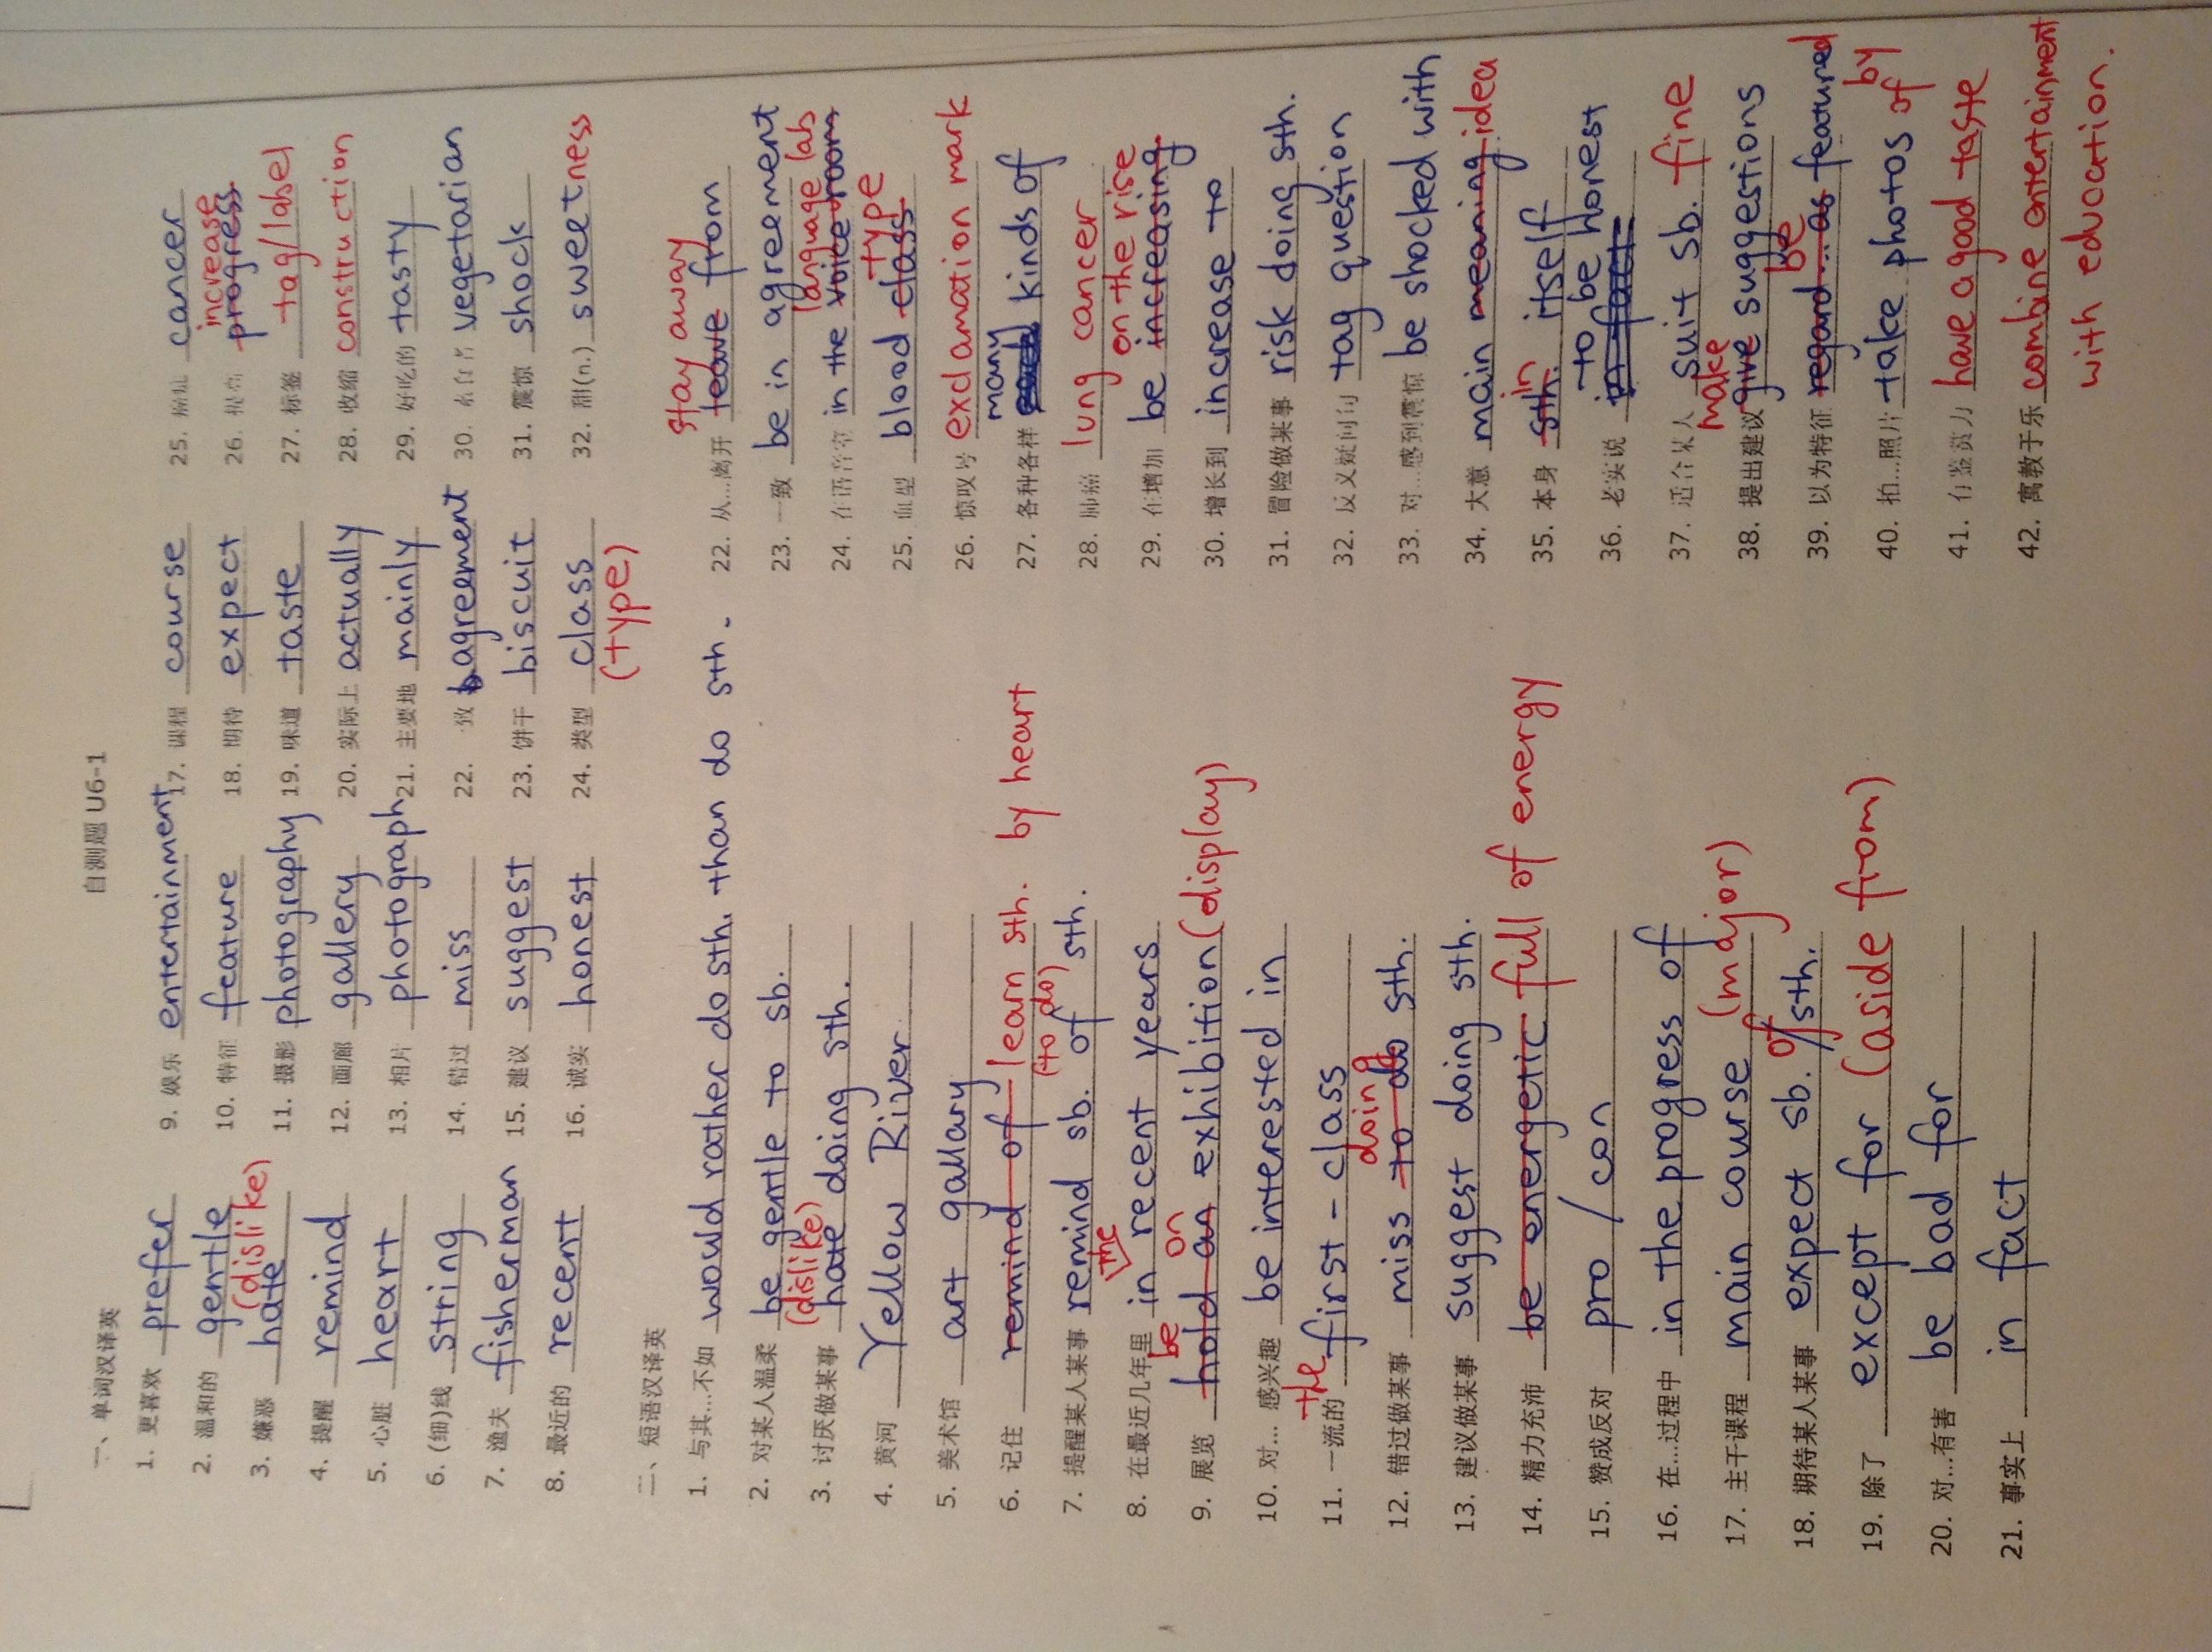 自测题 U6-1
一、单词汉译英
1. 更喜欢 prefer
2. 温和的 gentle
(dislike)
3. 嫌恶 hate
4. 提醒 remind
5. 心脏 heart
6. (细)线 string
7. 渔夫 fisherman
8. 最近的 recent
9. 娱乐 entertainment
10. 特征 feature
11. 摄影 photography
12. 画廊 gallery
13. 相片 photograph
14. 错过 miss
15. 建议 suggest
16. 诚实 honest
17. 课程 course
18. 期待 expect
19. 味道 taste
20. 实际上 actually
21. 主要地 mainly
22. 一致 agreement
23. 饼干 biscuit
24. 类型 class
(type)
25. 癌症 cancer
increase
26. 提高 progress
27. 标签 tag/label
28. 收缩 construction
29. 好吃的 tasty
30. 素食者 vegetarian
31. 震惊 shock
32. 甜(n.) sweetness
二、短语汉译英
1. 与其...不如 would rather do sth. than do sth.
2. 对某人温柔 be gentle to sb.
(dislike)
3. 讨厌做某事 hate doing sth.
4. 黄河 Yellow River
5. 美术馆 art gallary
6. 记住 remind of learn sth. by heart
(to do)
7. 提醒某人某事 remind sb. of sth.
the
8. 在最近几年里 in recent years
be on
9. 展览 hold an exhibition (display)
10. 对... 感兴趣 be interested in
the
11. 一流的 first-class
doing
12. 错过做某事 miss to do sth.
13. 建议做某事 suggest doing sth.
14. 精力充沛 be energetic full of energy
15. 赞成反对 pro / con
16. 在...过程中 in the progress of
17. 主干课程 main course (major)
of
18. 期待某人某事 expect sb. / sth.
19. 除了 except for (aside from)
20. 对...有害 be bad for
21. 事实上 in fact
stay away
22. 从...离开 leave from
23. 一致 be in agreement
language lab
24. 在语音室 in the voice room
type
25. 血型 blood class
26. 惊叹号 exclamation mark
many
27. 各种各样 each kinds of
28. 肺癌 lung cancer
on the rise
29. 在增加 be increasing
30. 增长到 increase to
31. 冒险做某事 risk doing sth.
32. 反义疑问句 tag question
33. 对...感到震惊 be shocked with
34. 大意 main meaning idea
in
35. 本身 sth. itself
to be honest
36. 老实说 in fact
37. 适合某人 suit sb. fine
make
38. 提出建议 give suggestions
be
39. 以为特征 regard...as featured
by
40. 拍...照片 take photos of
41. 有鉴赏力 have a good taste
42. 寓教于乐 combine entertainment
with education.